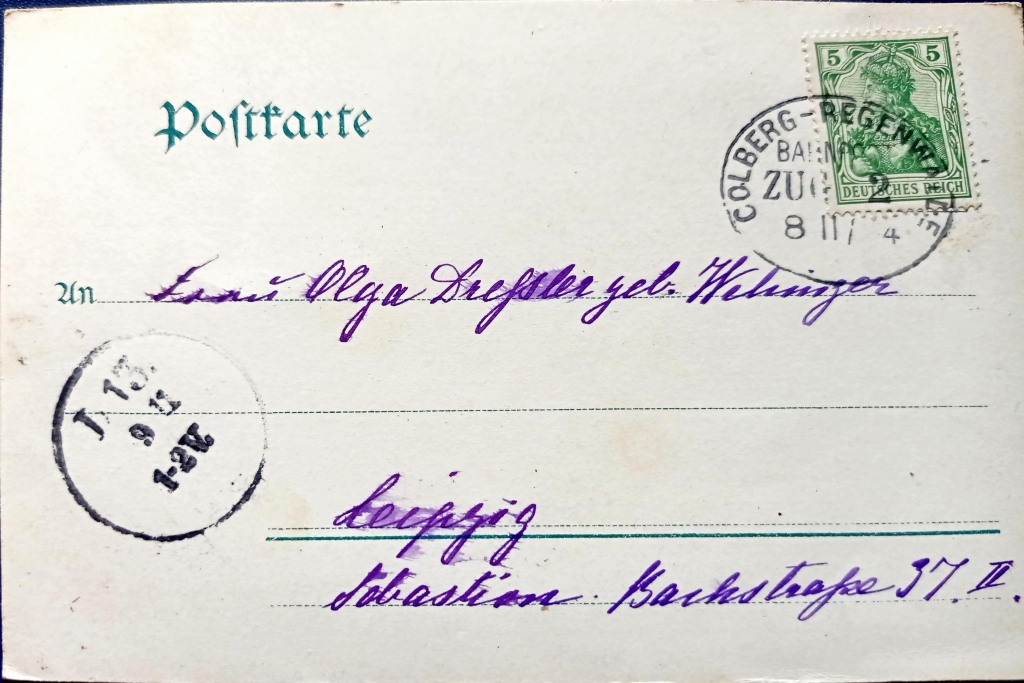 Postkarte
5 5
DEUTSCHES REICH
COLBERG-REGENWALDE
BAHNPOST
ZUG 2
8 11 4
An Frau Olga Dreßler geb. Wehinger
L 13.
9 11
1-2 V.
Leipzig
Sebastian Bachstraße 37. II.